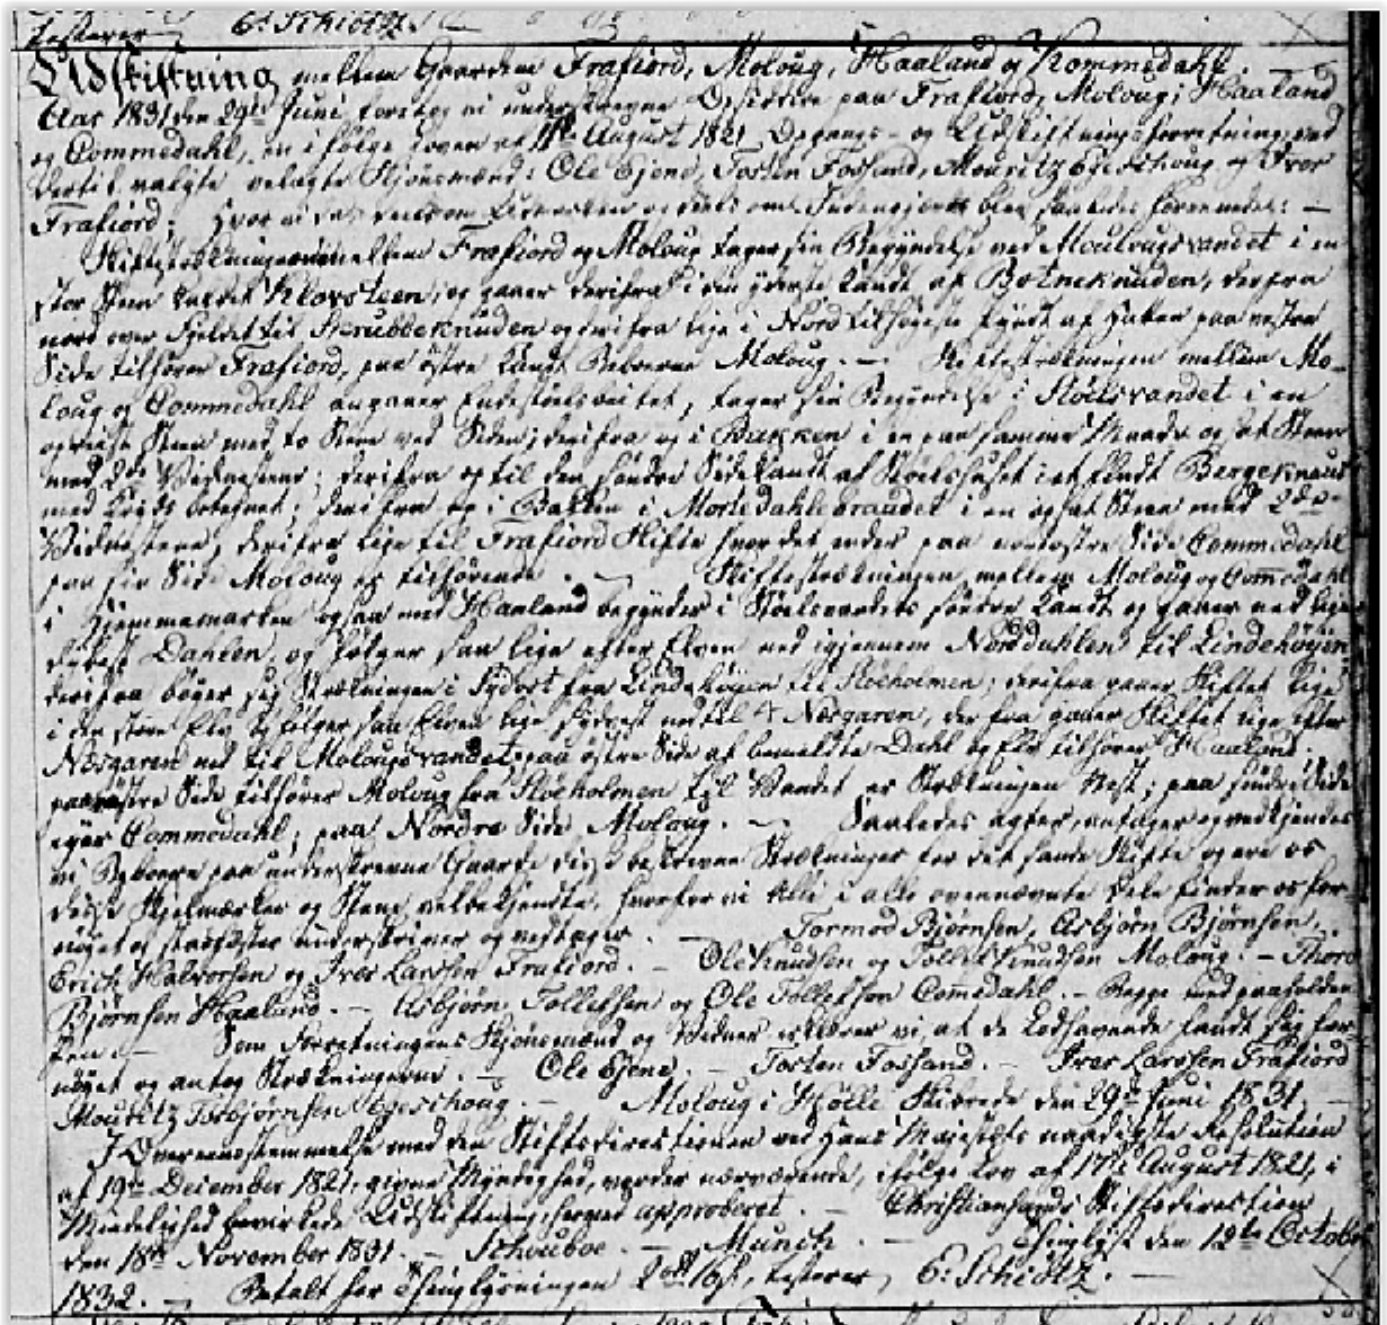 testerer E: Schiøtz.
Udskiftning mellem Gaardene Frafiord, Moloug, Haaland og Kommedahl.
Aar 1831 den 29de Juni foretog vi underskrevne Opsiddere paa Frafiord, Moloug, Haaland
og Commedahl, en i følge Loven af 17de August 1821 Opgangs- og Udskiftningsforretning ved
dertil valgte velagte Skjønsmænd: Ole Gjene, Torsten Fossand, Mouritz Egeschoug og Iver
Frafiord; Hvor vi da deels om og deels om blev saaledes forenede: —
Skiftestrækningen mellem Frafiord og Moloug tager sin Begyndelse ved Moulougsvandet i en
stor Steen kaldet Klovsteen, og gaaer derifra i den yderste Kandt af Botneknuden, derfra
nord over Fjeldet til Skrubbeknuden og derifra lige i Nord til høyeste af paa vestre
Side tilhører Frafiord, paa østre Kandt Beboerne Moloug. — Skiftestrækningen mellem Mo-
loug og Commedahl angaaer, tager sin Begyndelse i Stølsvandet i en
opreist Steen med to Stene ved Siden; derifra og i Bakken i en paa samme Maade opsat Steen
med 2de Vidnestene; derifra og til den søndre Sidekandt af Stølshuset i et Bergeknaus
med Kryds betegnet; derifra og i Bakken i Mortedahlsbrandet i en opsat Steen med 2de
Vidnestene, derifra lige til Frafiord Skifte hvor det ender paa Side Commedahl
paa Side Moloug er tilhørende. — Skiftestrækningen mellem Moloug og Commedahl
i Hjemmemarken ogsaa med Haaland begynder i Stølsvandets søndre Kandt og gaaer ned lige
dybest Dahlen, og følger saa lige efter Elven ned igjennem Norddahlen til Lindehøyen
derifra bøyer sig Strækningen i Sydost fra Lindehøyen til Stoeholmen; derifra gaaer Skiftet lige
i den store Elv og følger saa Elven lige Sydvest ned til Næsgaren, derfra gaaer Skiftet lige efter
Næsgaren ned til Molougsvandet, paa østre Side af bemeldte Dahl og Elv tilhører Haaland.
paa vestre Side tilhører Moloug fra Stoeholmen til Vandet er Strækningen Vest; paa søndre Side
eyer Commedahl; paa Nordre Side Moloug. — Saaledes agter, antager og vedkjendes
vi Beboere paa underskrevne Gaarde disse beskrevne Strækninger for det sande Skifte og ere os
disse Skjelmærker og Stene velbekjendte, hvorfor vi Alle i alle ovennævnte Dele finder os for-
nøyet og stadfæster underskriver og vedtager. — Tormod Bjørnsen, Asbjørn Bjørnsen,
Erich Halvorsen og Iver Larssen Frafiord. — Ole Knudsen og Tollef Knudsen Moloug. — Thore
Bjørnsen Haaland. — Asbjørn Tollefsen og Ole Tollefson Comedahl. — Begge med paaholden
Pen. — Som Forretningens Skjønsmænd og Vidner erklærer vi, at de Lodhavende fandt sig for-
nøyet og antog Strækningerne. — Ole Gjene. — Torsten Fossand. — Iver Larssen Frafiord
Mouritz Torbjørnsen Egeschoug. — Moloug i Hølle Skibrede den 29de Juni 1831. —
I Overeensstemmelse med den Stiftsdirectionen ved Hans Majestæts naadigste Resolution
af 19de December 1821, givne Myndighed, vorder nærværende, ifølge Lov af 17de August 1821, i
Mindelighed bevirkede Udskiftning, herved approberet. — Christiansands Stiftsdirection
den 18de November 1831. — Schouboe. — Munch. — Thinglyst den 12te October
1832. — Betalt for Thinglysningen 2 16 s, testerer, E: Schiøtz. —